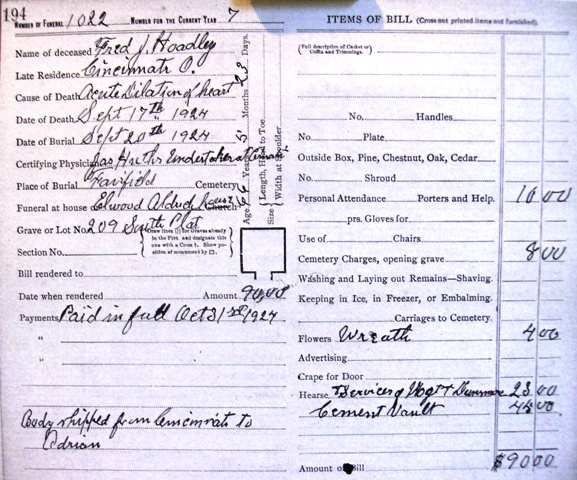 194
NUMBER OF FUNERAL 1022 NUMBER FOR THE CURRENT YEAR 7
Name of deceased Fred J. Hoadley
Late Residence Cincinnati O.
Cause of Death Acute Dilation of heart
Date of Death Sept 17th 1924
Date of Burial Sept 20th 1924
Certifying Physician Jas Undertaker at
Place of Burial Fairfield Cemetery
Funeral at house Elwood House Church
Grave or Lot No. 209 South
Draw lines for Graves already in the Plot and designate this one with a Cross †. Show position of monument by □.
Section No.
Bill rendered to
Date when rendered Amount 90.00
Payments Paid in full Oct 31st 1924
"
"
Body shipped from Cincinnati to
Adrian
Age Years 5 Months Days.
Size { Length, Head to Toe
Width at Shoulder
ITEMS OF BILL (Cross out printed items not furnished).
(Full description of Casket or Coffin and Trimmings.
No. Handles
No. Plate
Outside Box, Pine, Chestnut, Oak, Cedar
No. Shroud
Personal Attendance Porters and Help. 10 00
prs. Gloves for
Use of Chairs
Cemetery Charges, opening grave 8 00
Washing and Laying out Remains—Shaving.
Keeping in Ice, in Freezer, or Embalming.
Carriages to Cemetery.
Flowers Wreath 4 00
Advertising
Crape for Door
Hearse Services of 23 00
Cement Vault 45 00
Amount of Bill $90 00